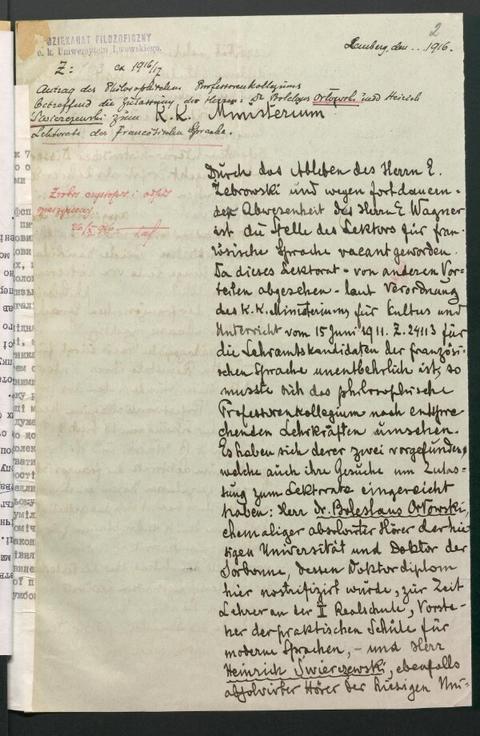 2
DZIEKANAT FILOZOFICZNY
c. k. Uniwersytetu Lwowskiego.
Lemberg, den .. 1916.
Z: ex 1916/17
Antrag des Philosophischen Professorenkollegiums
betreffend die Zulassung der Herren: Dr Boleslaus Orłowski und Heinrich
Swierczewski zum
K.K. Ministerium
Lektorate der Französischen Sprache.
Durch das Ableben des Herrn E.
Zebrowski und wegen fortdauern-
der Abwesenheit des Herrn E Wagner
ist die Stelle des Lektors für fran-
zösische Sprache vacant geworden.
Da dieses Lektorat - von anderen Vor-
teilen abgesehen - laut Verordnung
des K.K. Ministeriums für Kultus und
Unterricht vom 15 Juni 1911. Z. 24113 für
die Lehramtskandidaten der französi-
schen Sprache unentbehrlich ist, so
musste sich das philosophische
Professorenkollegium nach entspre-
chenden Lehrkräften umsehen.
Es haben sich derer zwei vorgefunden,
welche auch ihre Gesuche um Zulas-
sung zum Lektorate eingereicht
haben: Herr Dr. Boleslaus Orłowski,
ehemaliger absolvirter Hörer der hie-
sigen Universität und Doktor der
Sorbonne, dessen Doktordiplom
hier nostrifizirt wurde, zur Zeit
Lehrer an der II Realschule, Vorste-
her der praktischen Schule für
moderne Sprachen, - und Herr
Heinrich Swierczewski, ebenfalls
absolvirter Hörer der hiesigen Uni-